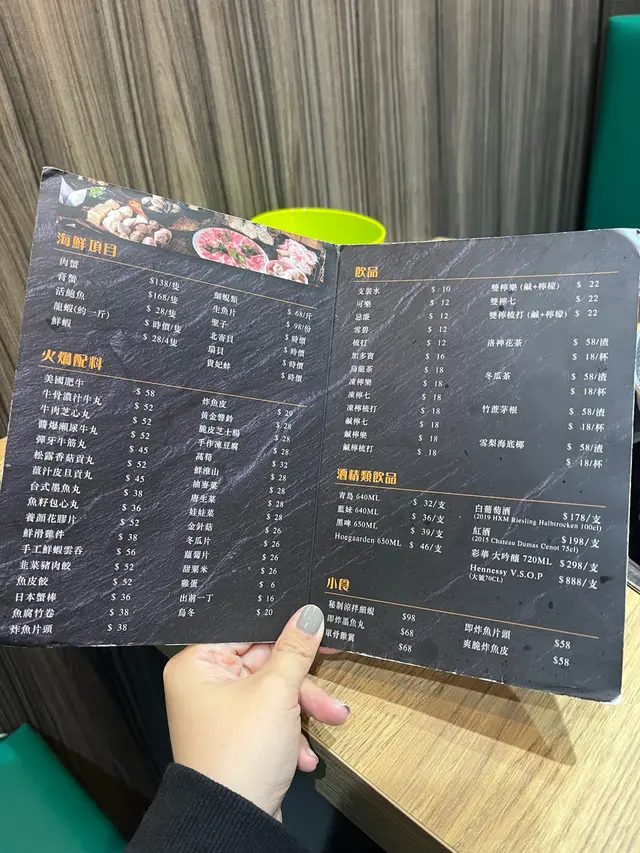 海鮮項目
肉蟹 $138/隻
膏蟹 $168/隻
活鮑魚 $ 28/隻
龍蝦(約一斤) $ 時價/隻
鮮蝦 $ 28/4隻
細蜆類 $ 68/斤
生魚片 $ 98/份
聖子 $ 時價
北寄貝 $ 時價
扇貝 $ 時價
貴妃蚌 $ 時價
火煱配料
美國肥牛 $ 58
牛骨濃汁牛丸 $ 52
牛肉芝心丸 $ 52
醬爆瀨尿牛丸 $ 52
彈牙牛筋丸 $ 45
松露香菇貢丸 $ 52
薑汁皮旦貢丸 $ 45
台式墨魚丸 $ 38
魚籽包心丸 $ 36
養顏花膠片 $ 52
鮮滑雞件 $ 38
手工鮮蝦雲吞 $ 56
韭菜豬肉餃 $ 52
魚皮餃 $ 52
日本蟹棒 $ 36
魚腐竹卷 $ 38
炸魚片頭 $ 38
炸魚皮 $ 29
黃金響鈴 $ 28
脆皮芝士腸 $ 28
手作凍豆腐 $ 28
萵筍 $ 32
鮮淮山 $ 28
油麥菜 $ 28
唐生菜 $ 28
娃娃菜 $ 28
金針菇 $ 26
冬瓜片 $ 26
蘿蔔片 $ 26
甜粟米 $ 26
雞蛋 $ 6
出前一丁 $ 16
烏冬 $ 20
飲品
支裝水 $ 10
可樂 $ 12
忌廉 $ 12
雪碧 $ 12
梳打 $ 12
加多寶 $ 16
烏龍茶 $ 18
凍檸樂 $ 18
凍檸七 $ 18
凍檸梳打 $ 18
鹹檸七 $ 18
鹹檸樂 $ 18
鹹檸梳打 $ 18
雙檸樂 (鹹+檸檬) $ 22
雙檸七 $ 22
雙檸梳打 (鹹+檸檬) $ 22
洛神花茶 $ 58/渣
$ 18/杯
冬瓜茶 $ 58/渣
$ 18/杯
竹蔗茅根 $ 58/渣
$ 18/杯
雪梨海底椰 $ 58/渣
$ 18/杯
酒精類飲品
青島 640ML $ 32/支
藍妹 640ML $ 36/支
黑啤 650ML $ 39/支
Hoegaarden 650ML $ 46/支
白葡萄酒 $178/支
(2019 HXM Riesling Halbtrocken 100cl)
紅酒 $198/支
(2015 Chateau Dumas Cenot 75cl)
彩華 大吟釀 720ML $298/支
Hennessy V.S.O.P $888/支
(大號70CL)
小食
秘制涼拌細蜆 $98
即炸墨魚丸 $68
單骨雞翼 $68
即炸魚片頭 $58
爽脆炸魚皮 $58